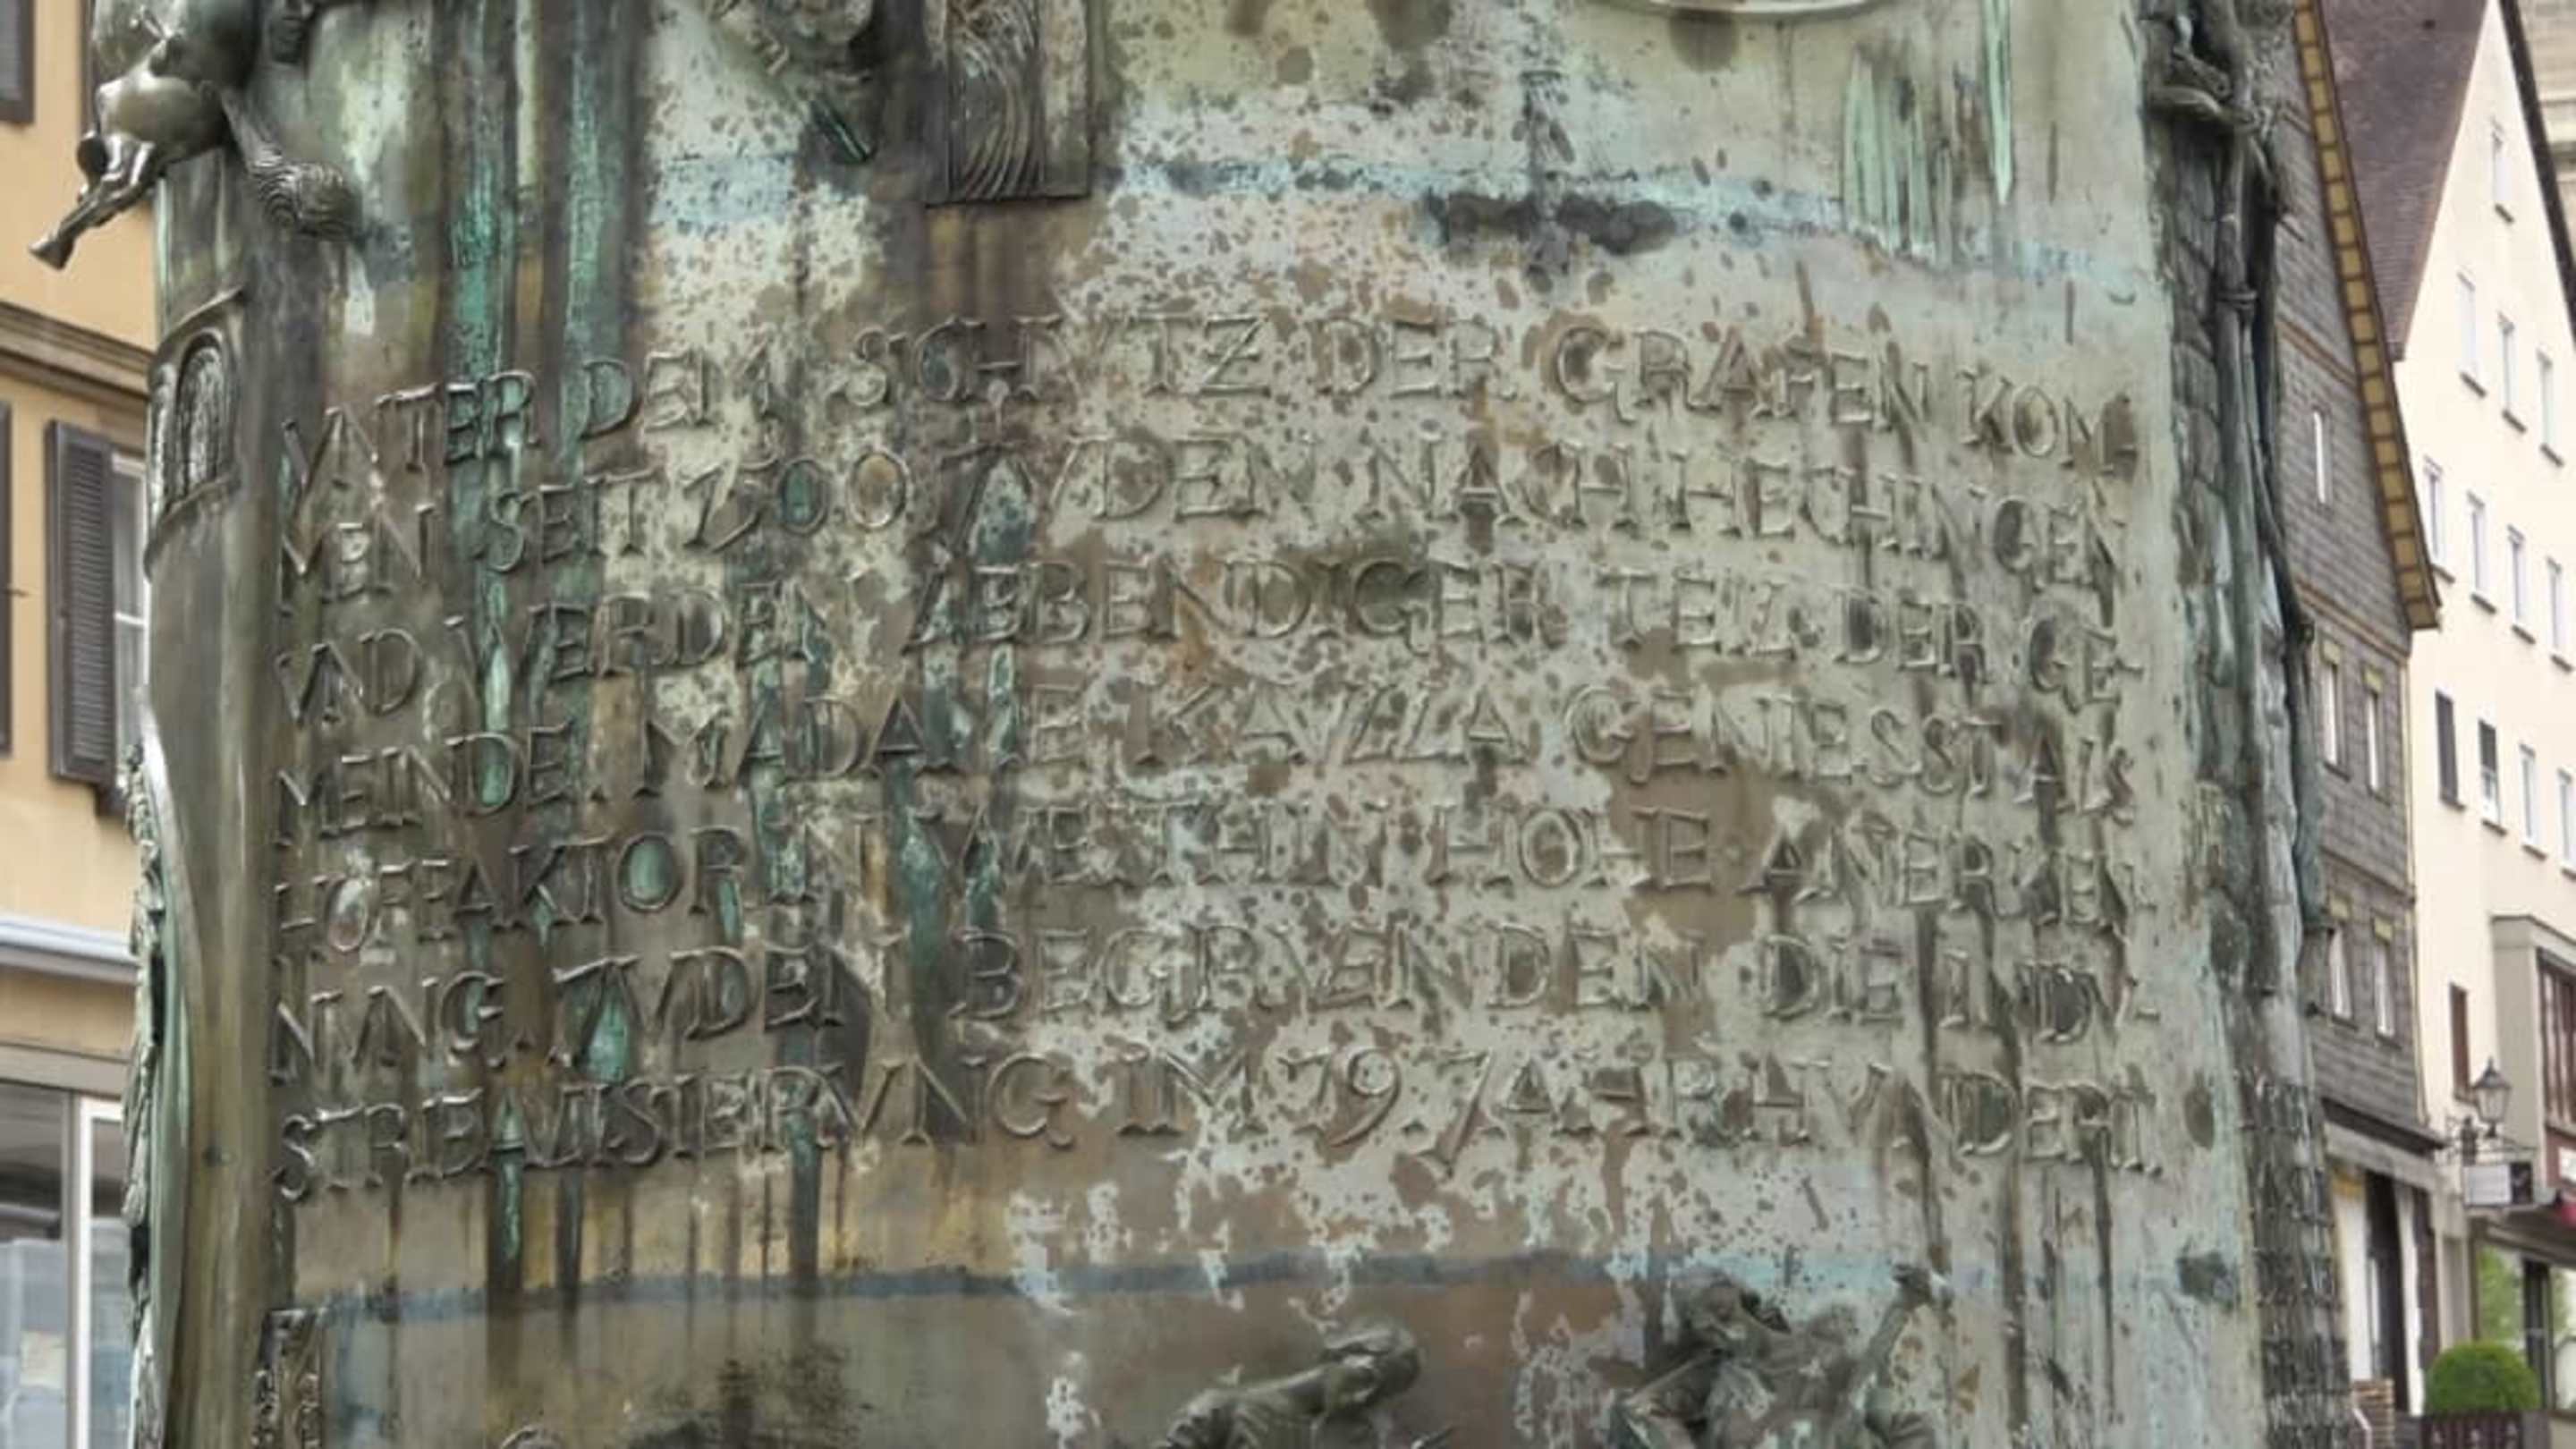 VNTER DEM SCHVTZ DER GRAFEN KOM-
MEN SEIT 1500 JVDEN NACH HECHINGEN
VND WERDEN LEBENDIGER TEIL DER GE-
MEINDE. MADAME KAVLLA GENIESST ALS
HOFFAKTORIN WEITHIN HOHE ANERKEN-
NVNG. JVDEN BEGRVENDEN DIE INDV-
STRIEALISIERVNG IM 19. JAHRHVNDERT.